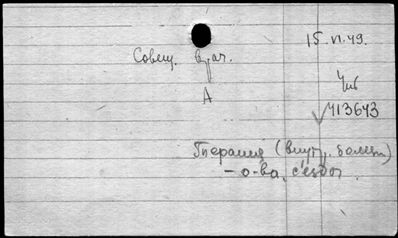 15.VI.49.
Совещ. врач.
Чит
А
√413643
Терапия (внут. болезн)
– о-ва, съезды